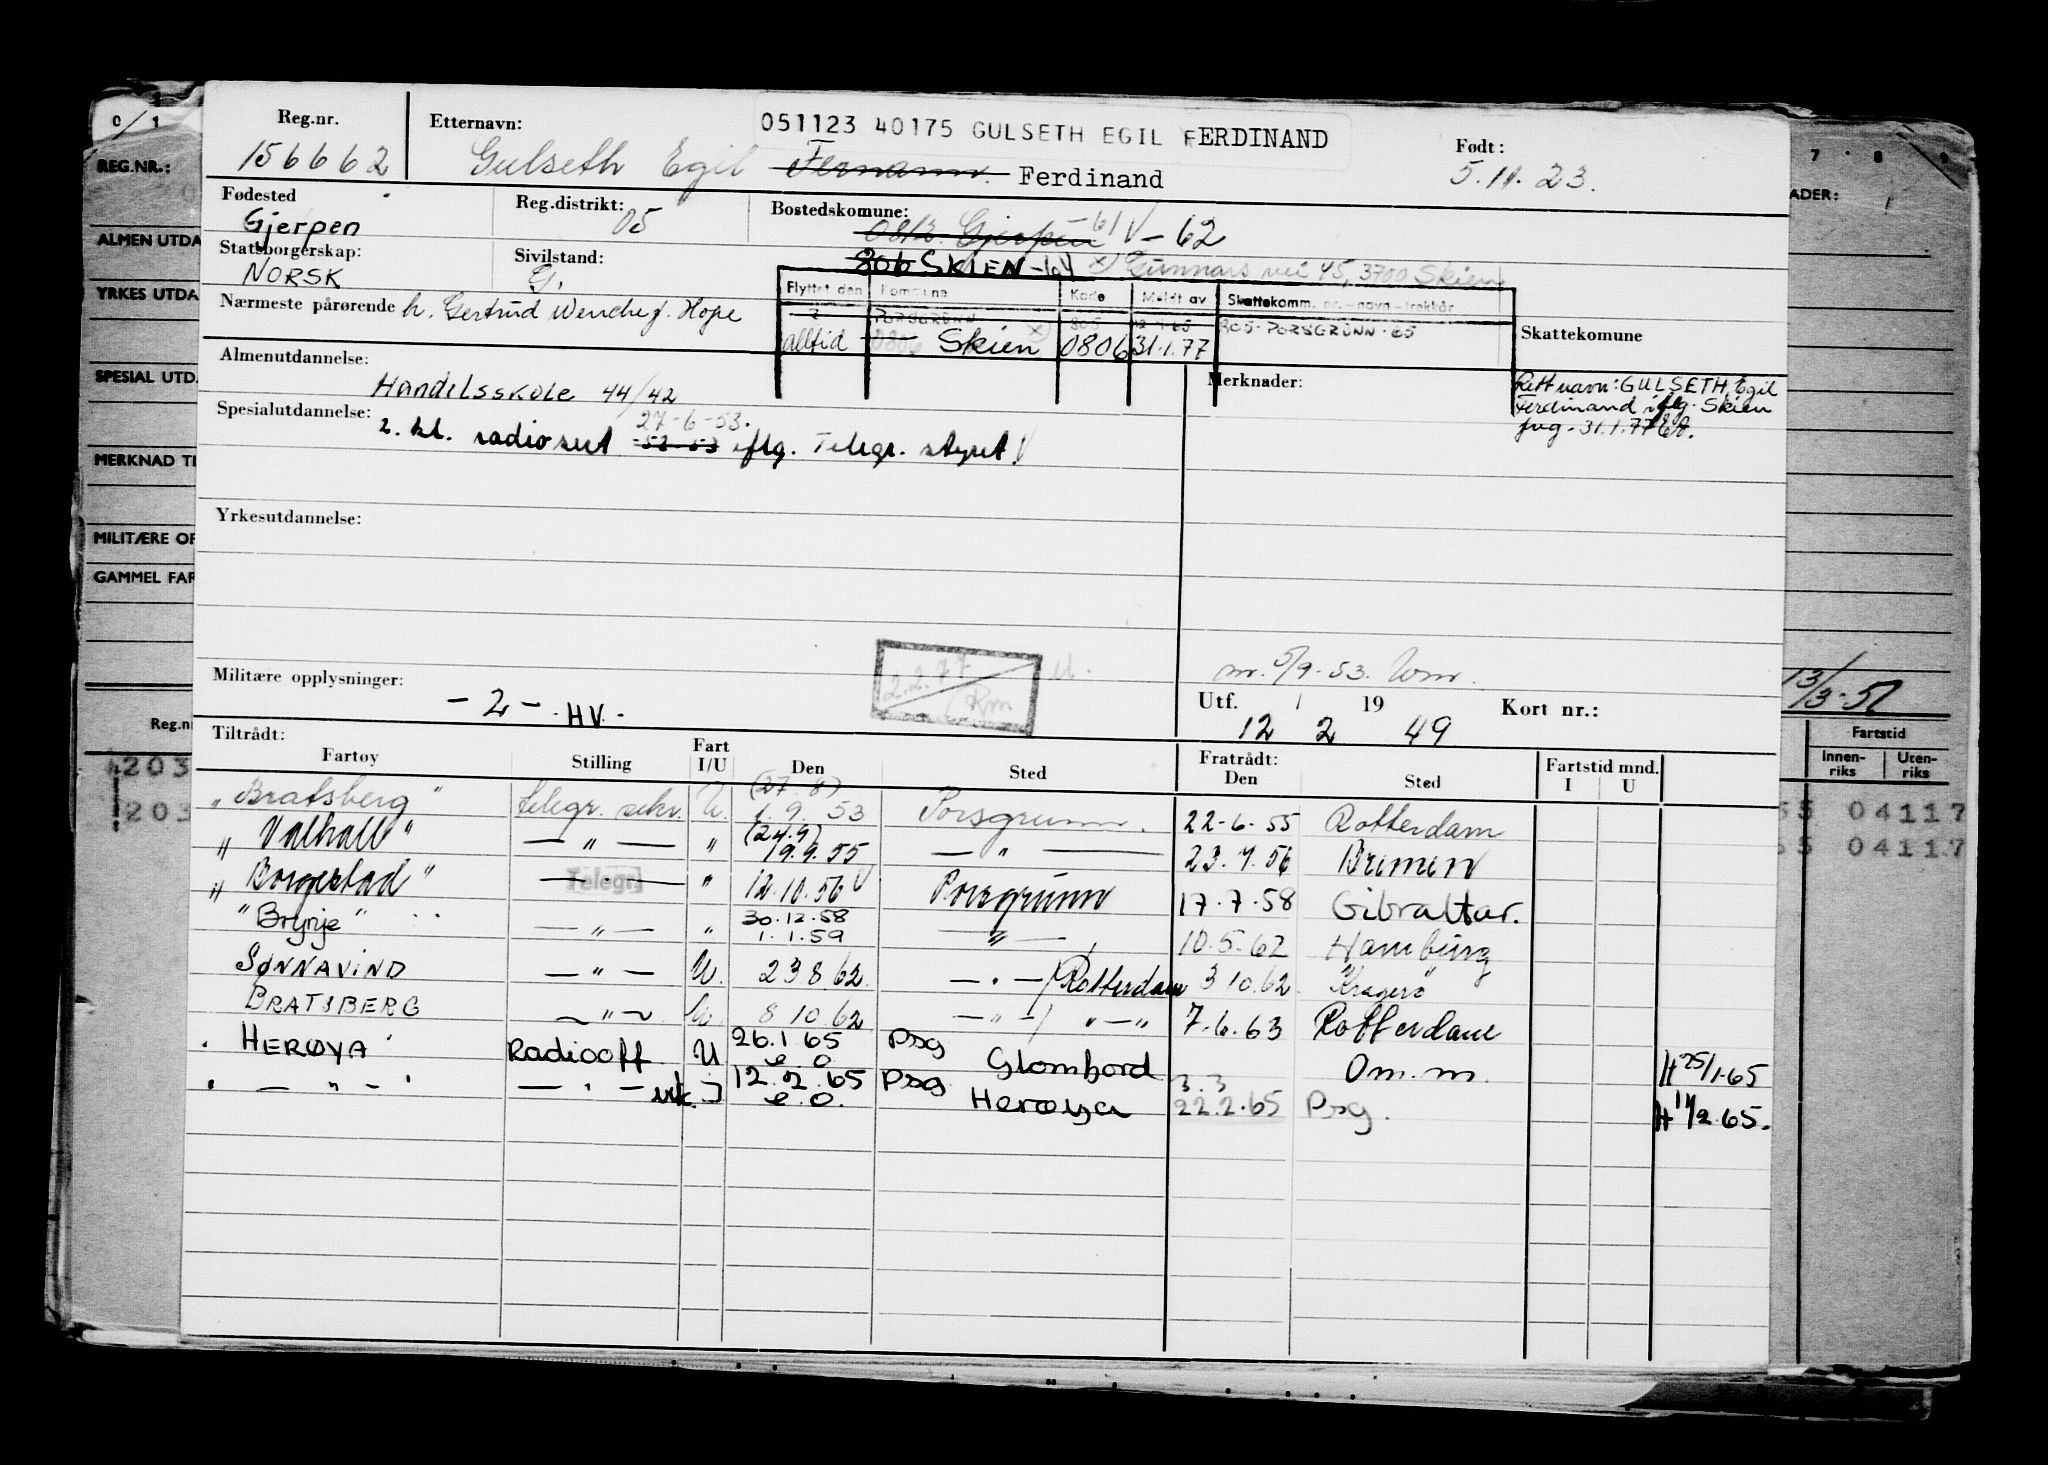 0 / 1
Reg.nr.
Etternavn:
051123 40175 GULSETH EGIL FERDINAND
Født:
7 8 9
REG.NR.:
156662
Gulseth Egil Fernann Ferdinand
5.11.23.
ADER:
Fødested
Gjerpen
Reg.distrikt: 05
Bostedskomune:
0812 Gjerpen 61 V - 62
ALMEN UTDA
Statsborgerskap:
NORSK
Sivilstand:
G.
806 SKIEN -64 x) Gunnars vei 45, 3700 Skien
YRKES UTDA
Nærmeste pårørende h. Gertrud Wenche f. Hope
Flyttet den Kommune Kode Meldt av Skattekomm. nr.-navn-trekkår
PORSGRUNN 805 12.1.65 805-PORSGRUNN-65
Skattekomune
alltid 0806 Skien x) 0806 31.1.77
Almenutdannelse:
Handelsskole 44/42
Merknader:
Rett navn: GULSETH, Egil
Ferdinand iflg. Skien
fvg. 31.1.77 EA.
SPESIAL UTD.
Spesialutdannelse:
27-6-53.
2. kl. radiosert 52-53 iflg. Telegr. styret V
MERKNAD TI
Yrkesutdannelse:
MILITÆRE OP
GAMMEL FAR
Militære opplysninger:
- 2 - HV -
2.2.77 / Rm
nr. 5/9-53.
Utf. / 19 Kort nr.:
12 2 49
13/3-57
Reg.n
Tiltrådt:
Fartøy Stilling Fart I/U Den Sted Fratrådt: Den Sted Fartstid mnd. I U
Fartstid
Innen-riks Uten-riks
203
203
"Bratsberg" telegr. sekr. U. (27.8) 1.9.53 Porsgrunn. 22-6-55 Rotterdam
55 04117
"Valhall" — " — " (24.9) 19.9.55 — " — 23.7.56 Bremen
55 04117
"Borgestad" Telegr. " 12.10.56 V Porsgrunn 17.7.58 Gibraltar.
"Brynje" — " — " 30.12.58 1.1.59 — " — 10.5.62 Hamburg
SØNNAVIND — " — U. 23 8.62. — " — / Rotterdam 3 10.62. Kragerø
BRATSBERG — " — U. 8 10.62 — " — / " — " 7.6.63 Rotterdam
HERØYA Radiooff U 26.1 65 e.o. Psg Glomfjord Om.m. H 25/1-65
— " — — " — vik. 12.2.65 e.o. Psg Herøya 3.3 22.2.65 Psg. H 11/2.65.